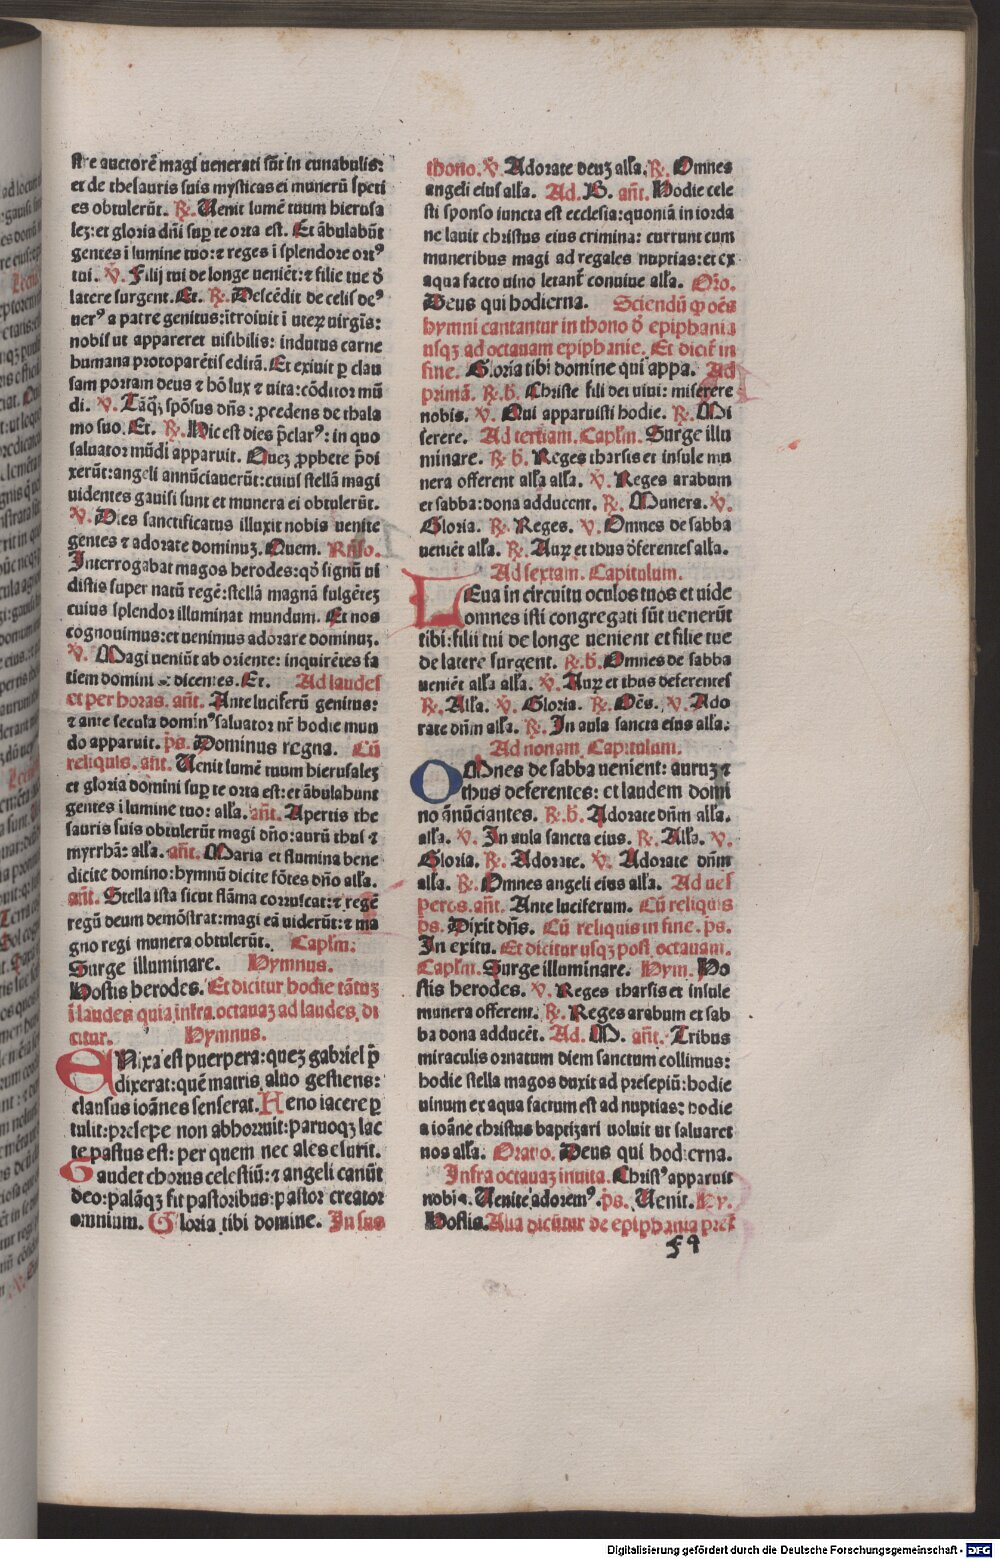 stre auctorē magi uenerati sūt in cunabulis:
et de thesauris suis mysticas ei munerū speti
es obtulerūt. ℟. Uenit lumē tuum hierusa
leʒ: et gloria dñi suꝑ te orta est. Et ābulabūt
gentes ī lumine tuo: ⁊ reges ī splendore ortꝰ
tui. ℣. Filij tui de longe ueniēt: ⁊ filie tue ō
latere surgent. Et. ℟. Descēdit de celis deꝰ
uerꝰ a patre genitus: ītroiuit ī uterꝝ uirgīs:
nobis ut appareret uisibilis: indutus carne
humana protoparētis editā. Et exiuit ꝑ clau
sam portam deus ⁊ hō lux ⁊ uita: cōditor mū
di. ℣. Tāqʒ spōsus dñs: ꝓcedens de thala
mo suo. Et. ℟. Hic est dies p̄clarꝰ: in quo
saluator mūdi apparuit. Queʒ ꝓphete p̄di
xerūt: angeli annūciauerūt: cuius stellā magi
uidentes gauisi sunt et munera ei obtulerūt.
℣. Dies sanctificatus illuxit nobis uenite
gentes ⁊ adorate dominuʒ. Quem.
Interrogabat magos herodes: qď signū ui
distis super natū regē: stellā magnā fulgēteʒ
cuius splendor illuminat mundum. Et nos
cognouimus: et uenimus adorare dominuʒ.
℣. Magi ueniūt ab oriente: inquirētes fa
tiem domini ⁊ dicentes. Et. Ad laudes
et per horas. añt. Ante luciferū genitus:
⁊ ante secula dominꝰ saluator nr̄ hodie mun
do apparuit. p̄s. Dominus regna. Cū
reliquis. añt. Uenit lumē tuum hierusaleʒ
et gloria domini suꝑ te orta est: et ābulabunt
gentes ī lumine tuo: alľa. añt. Apertis the
sauris suis obtulerūt magi dño: aurū thus ⁊
myrrhā: alľa. añt. Maria et flumina bene
dicite domino: hymnū dicite fōtes dño alľa.
añt. Stella ista sicut flāma corruscat: ⁊ regē
regū deum demōstrat: magi eā uiderūt: ⁊ ma
gno regi munera obtulerūt. Capľm:
Surge illuminare. Hymnus.
Hostis herodes. Et dicitur hodie tātuʒ
ī laudes quia infra octauaʒ ad laudes di
citur. Hymnus.
ENixa est puerpera: queʒ gabriel p̄
dixerat: quē matris aluo gestiens:
clausus ioānes senserat. Feno iacere ꝑ
tulit: presepe non abhorruit: paruoqʒ lac
te pastus est: per quem nec ales esurit.
Gaudet chorus celestiū: ⁊ angeli canūt
deo: palāqʒ fit pastoribus: pastor creator
omnium. Gloria tibi domine. In suo
thono. ℣. Adorate deuʒ alľa. ℟. Omnes
angeli eius alľa. Ad. B. añt. Hodie cele
sti sponso iuncta est ecclesia: quoniā in iorda
ne lauit christus eius crimina: currunt cum
muneribus magi ad regales nuptias: et ex
aqua facto uino letant̄ conuiue alľa. Oŕo.
Deus qui hodierna. Sciendū ꝙ oēs
hymni cantantur in thono ō epiphania
usqʒ ad octauam epiphanie. Et dicit̄ in
fine. Gloria tibi domine qui appa. Ad
primā. ℟. b. Christe fili dei uiui: miserere
nobis. ℣. Qui apparuisti hodie. ℟. Mi
serere. Ad tertiam. Capľm. Surge illu
minare. ℟. b. Reges tharsis et insule mu
nera offerent alľa alľa. ℣. Reges arabum
et sabba: dona adducent. ℟. Munera. ℣.
Gloria. ℟. Reges. ℣. Omnes de sabba
ueniēt alľa. ℟. Auꝝ et thus ōferentes alľa.
Ad sextam. Capitulum.
LEua in circuitu oculos tuos et uide
omnes isti congregati sūt uenerūt
tibi: filii tui de longe uenient et filie tue
de latere surgent. ℟. b. Omnes de sabba
ueniēt alľa alľa. ℣. Auꝝ et thus deferentes
℟. Alľa. ℣. Gloria. ℟. Oēs. ℣. Ado
rate dñm alľa. ℟. In aula sancta eius alľa:
Ad nonam. Capitulum.
OMnes de sabba uenient: auruʒ ⁊
thus deferentes: et laudem domi
no ānūciantes. ℟. b. Adorate dñm alľa.
alľa. ℣. In aula sancta eius. ℟. Alľa. ℣.
Gloria. ℟. Adorate. ℣. Adorate dñm
alľa. ℟. Omnes angeli eius alľa. Ad ues
peros. añt. Ante luciferum. Cū reliquis
p̄s. Dixit dñs. Cū reliquis in fine. p̄s.
In exitu. Et dicitur usqʒ post octauam.
Capľm. Surge illuminare. Hym. Ho
stis herodes. ℣. Reges tharsis et insule
munera offerent. ℟. Reges arabum et sab
ba dona adducēt. Ad. M. añt. Tribus
miraculis ornatum diem sanctum collimus:
hodie stella magos duxit ad presepiū: hodie
uinum ex aqua factum est ad nuptias: hodie
a ioāne christus baptizari uoluit ut saluaret
nos alľa. Oratio. Deus qui hodierna.
Infra octauaʒ inuita. Christꝰ apparuit
nobis. Uenite adoremꝰ. p̄s. Uenit. Hy.
Hostis. Aña dicūtur de epiphania pret